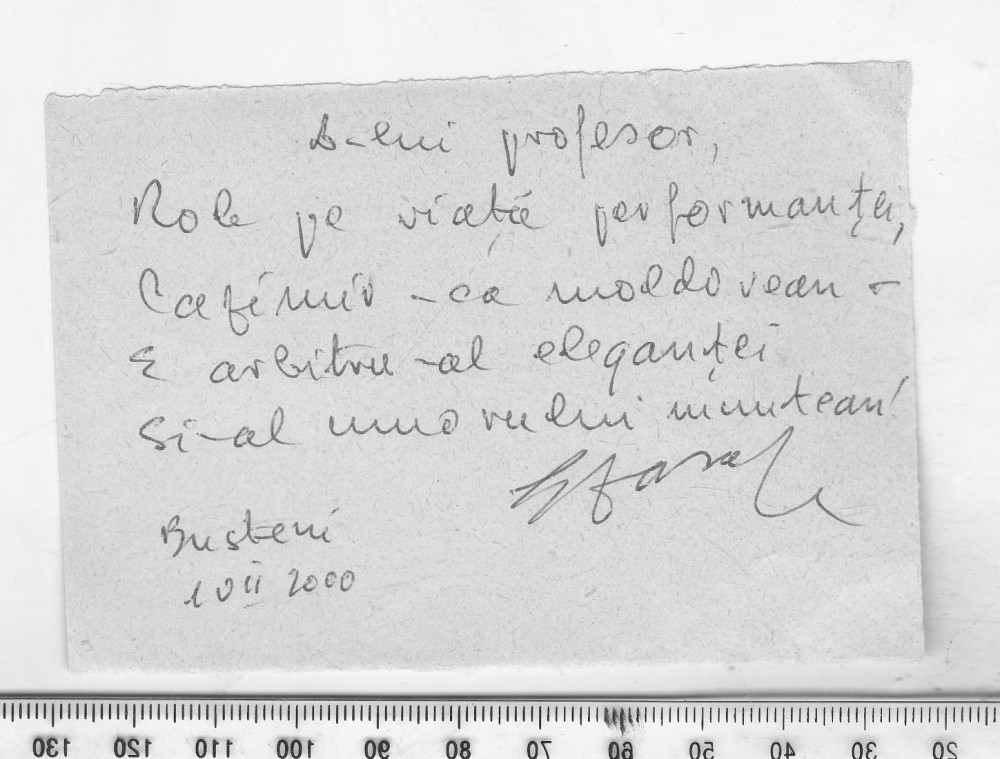 D-lui profesor,
Rob pe viață performanței,
Cazimir - ca moldovean -
E arbitru-al eleganței
Si-al umorului muntean!
Busteni
1 VII 2000
130 120 110 100 90 80 70 60 50 40 30 20